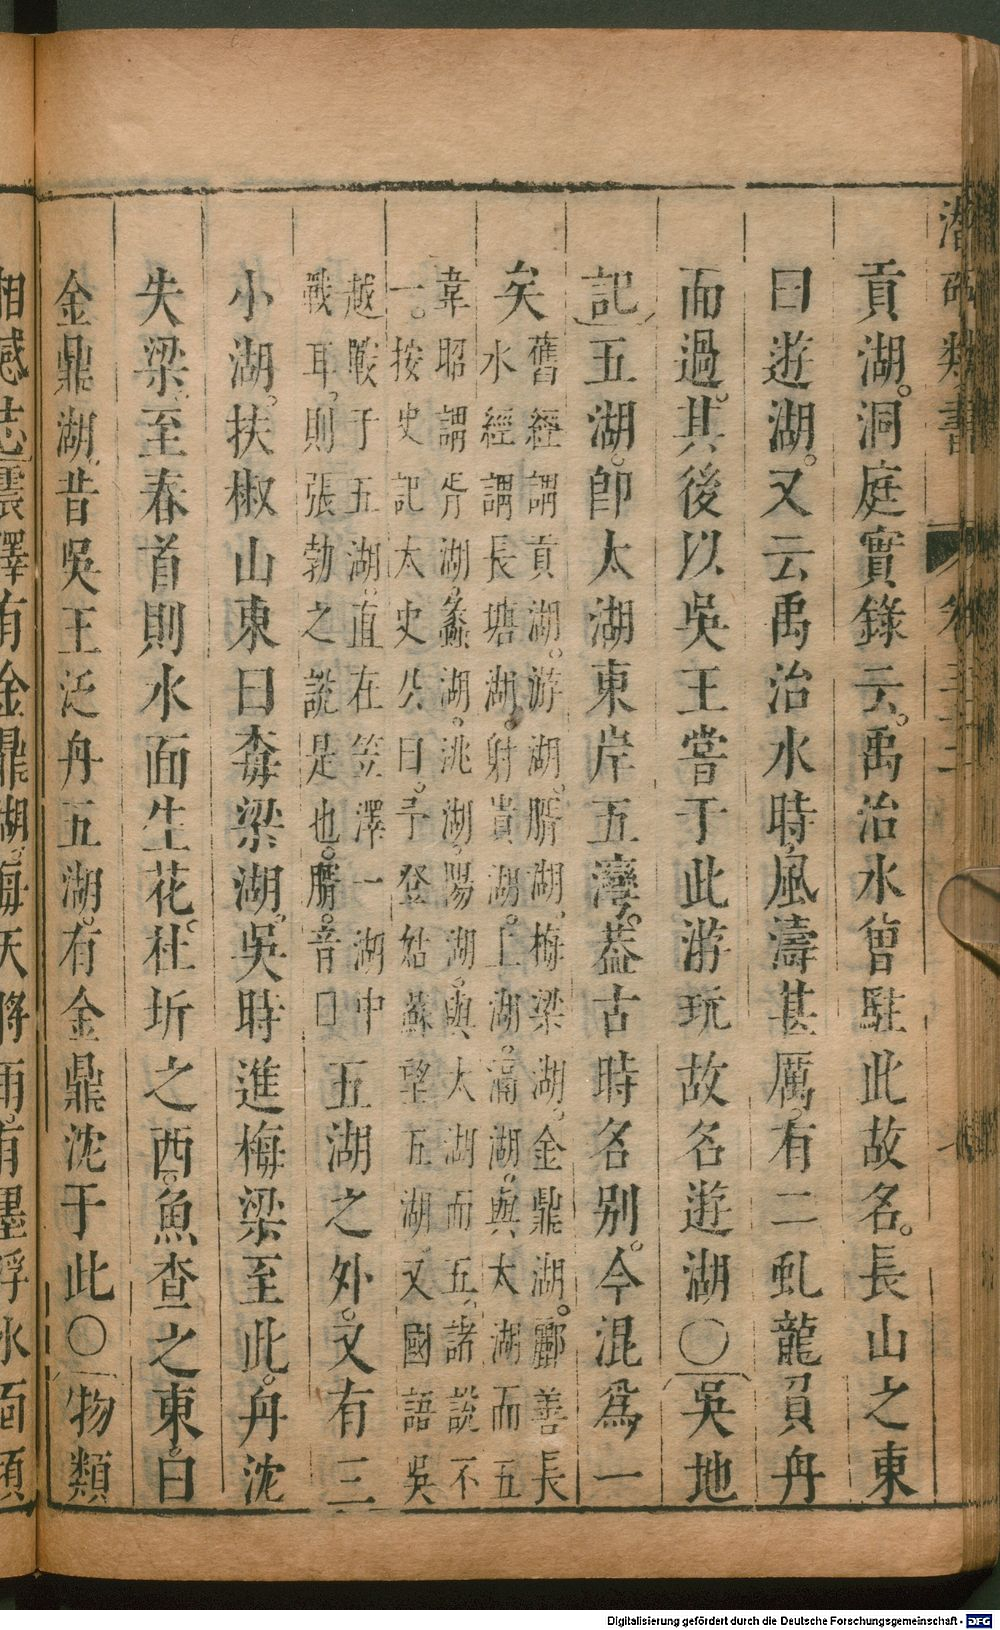 潛確類書 卷三十二
貢湖。洞庭實錄云。禹治水曾駐此故名。長山之東
曰遊湖。又云禹治水時。風濤甚厲。有二虬龍負舟
而過。其後以吳王嘗于此游玩故名遊湖〇吳地
記五湖。卽太湖東岸五灣。葢古時名別。今混爲一
矣
舊經謂貢湖。游湖。胥湖。梅梁湖。金鼎湖。酈善長
水經謂長塘湖。射貴湖。上湖。滆湖。與太湖而五
韋昭謂胥湖。蠡湖。洮湖。陽湖。與太湖而五。諸說不
一。按史記太史公曰。予登姑蘇望五湖又國語吳
越戰于五湖。直在笠澤一湖中
戰耳。則張勃之說是也。胥。音
五湖之外。又有三
小湖。扶椒山東曰梅梁湖。吳時進梅梁至此。舟沈
失梁。至春首則水面生花。杜圻之西。魚查之東。曰
金鼎湖。昔吳王泛舟五湖。有金鼎沈于此〇物類
相感志震澤有金鼎湖。每天將雨有墨浮水面須
Digitalisierung gefördert durch die Deutsche Forschungsgemeinschaft - DFG